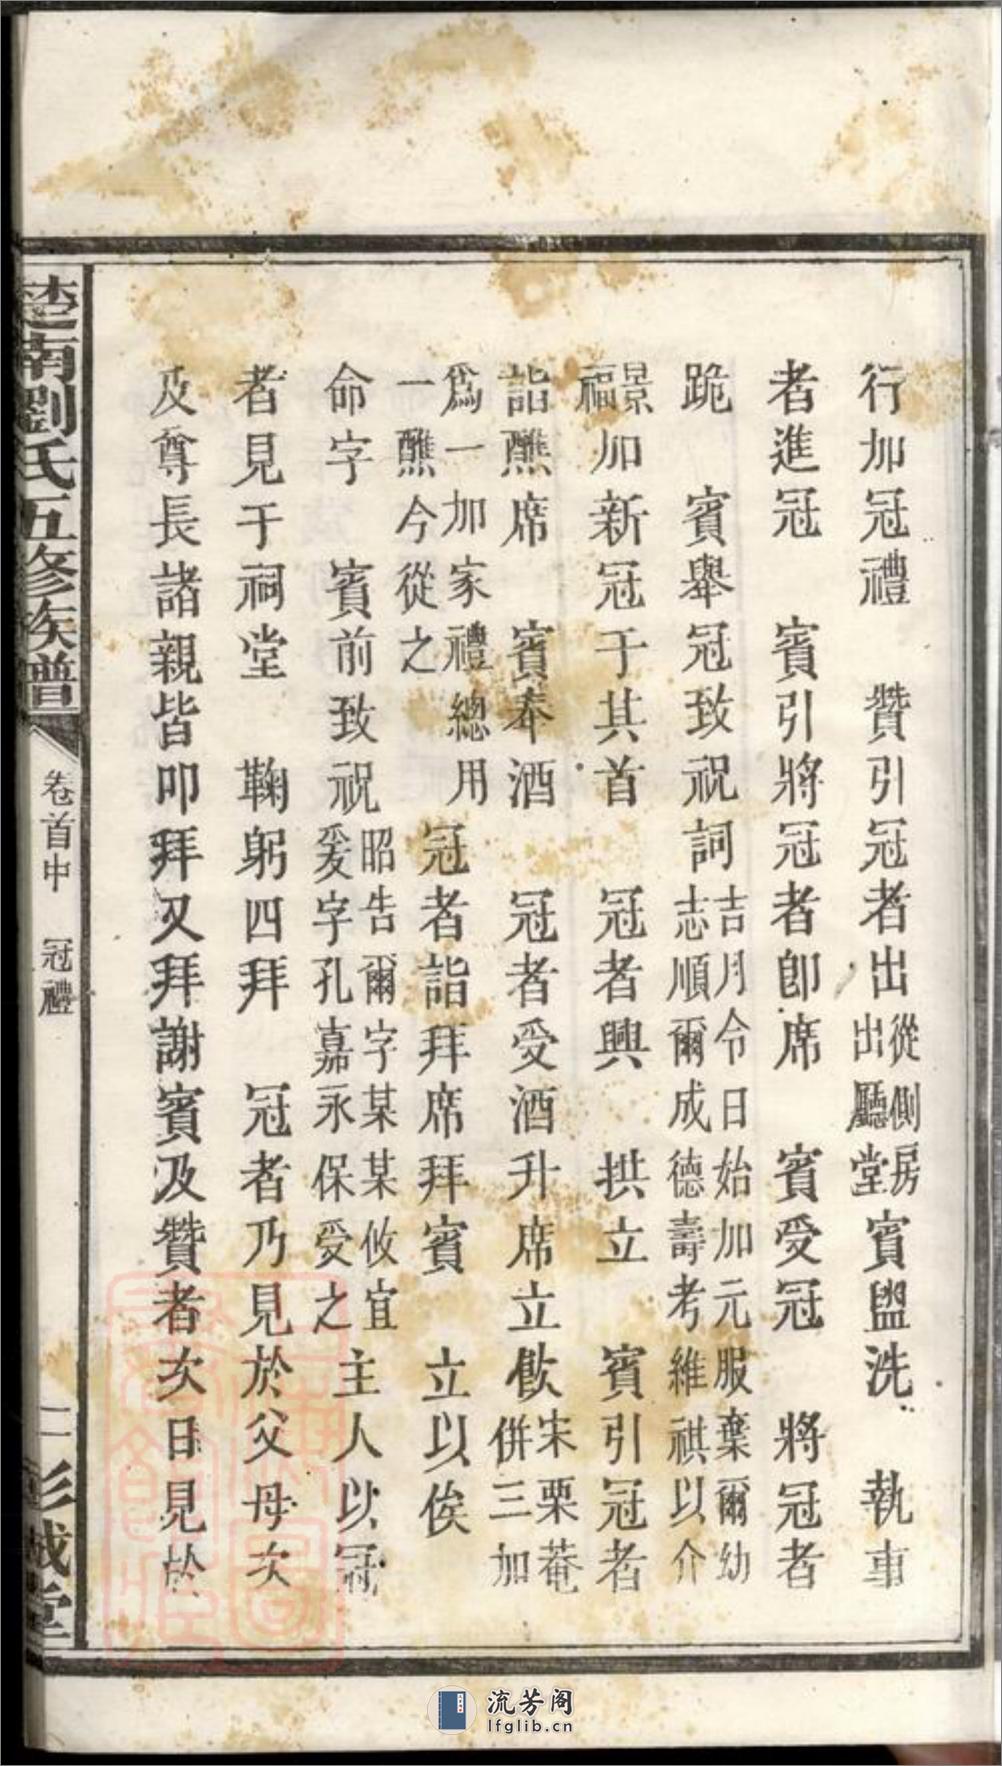 行加冠禮　贊引冠者出從側房出廳堂賓盥洗　執事
者進冠　賓引將冠者卽席　賓受冠　將冠者
跪　賓舉冠致祝詞吉月令日始加元服棄爾幼志順爾成德壽考維祺以介
景福加新冠于其首　冠者興　拱立　賓引冠者
詣醮席　賓奉酒　冠者受酒升席立飲宋栗菴併三加
爲一加家禮總用一醮今從之　冠者詣拜席拜賓　立以俟
命字　賓前致祝昭告爾字某某攸宜爰字孔嘉永保受之主人以冠
者見于祠堂　鞠躬四拜　冠者乃見於父母次
及尊長諸親皆叩拜又拜謝賓及贊者次日見於
楚南劉氏五修族譜　卷首中　冠禮　二　彭城堂
流芳阁
lfglib.cn